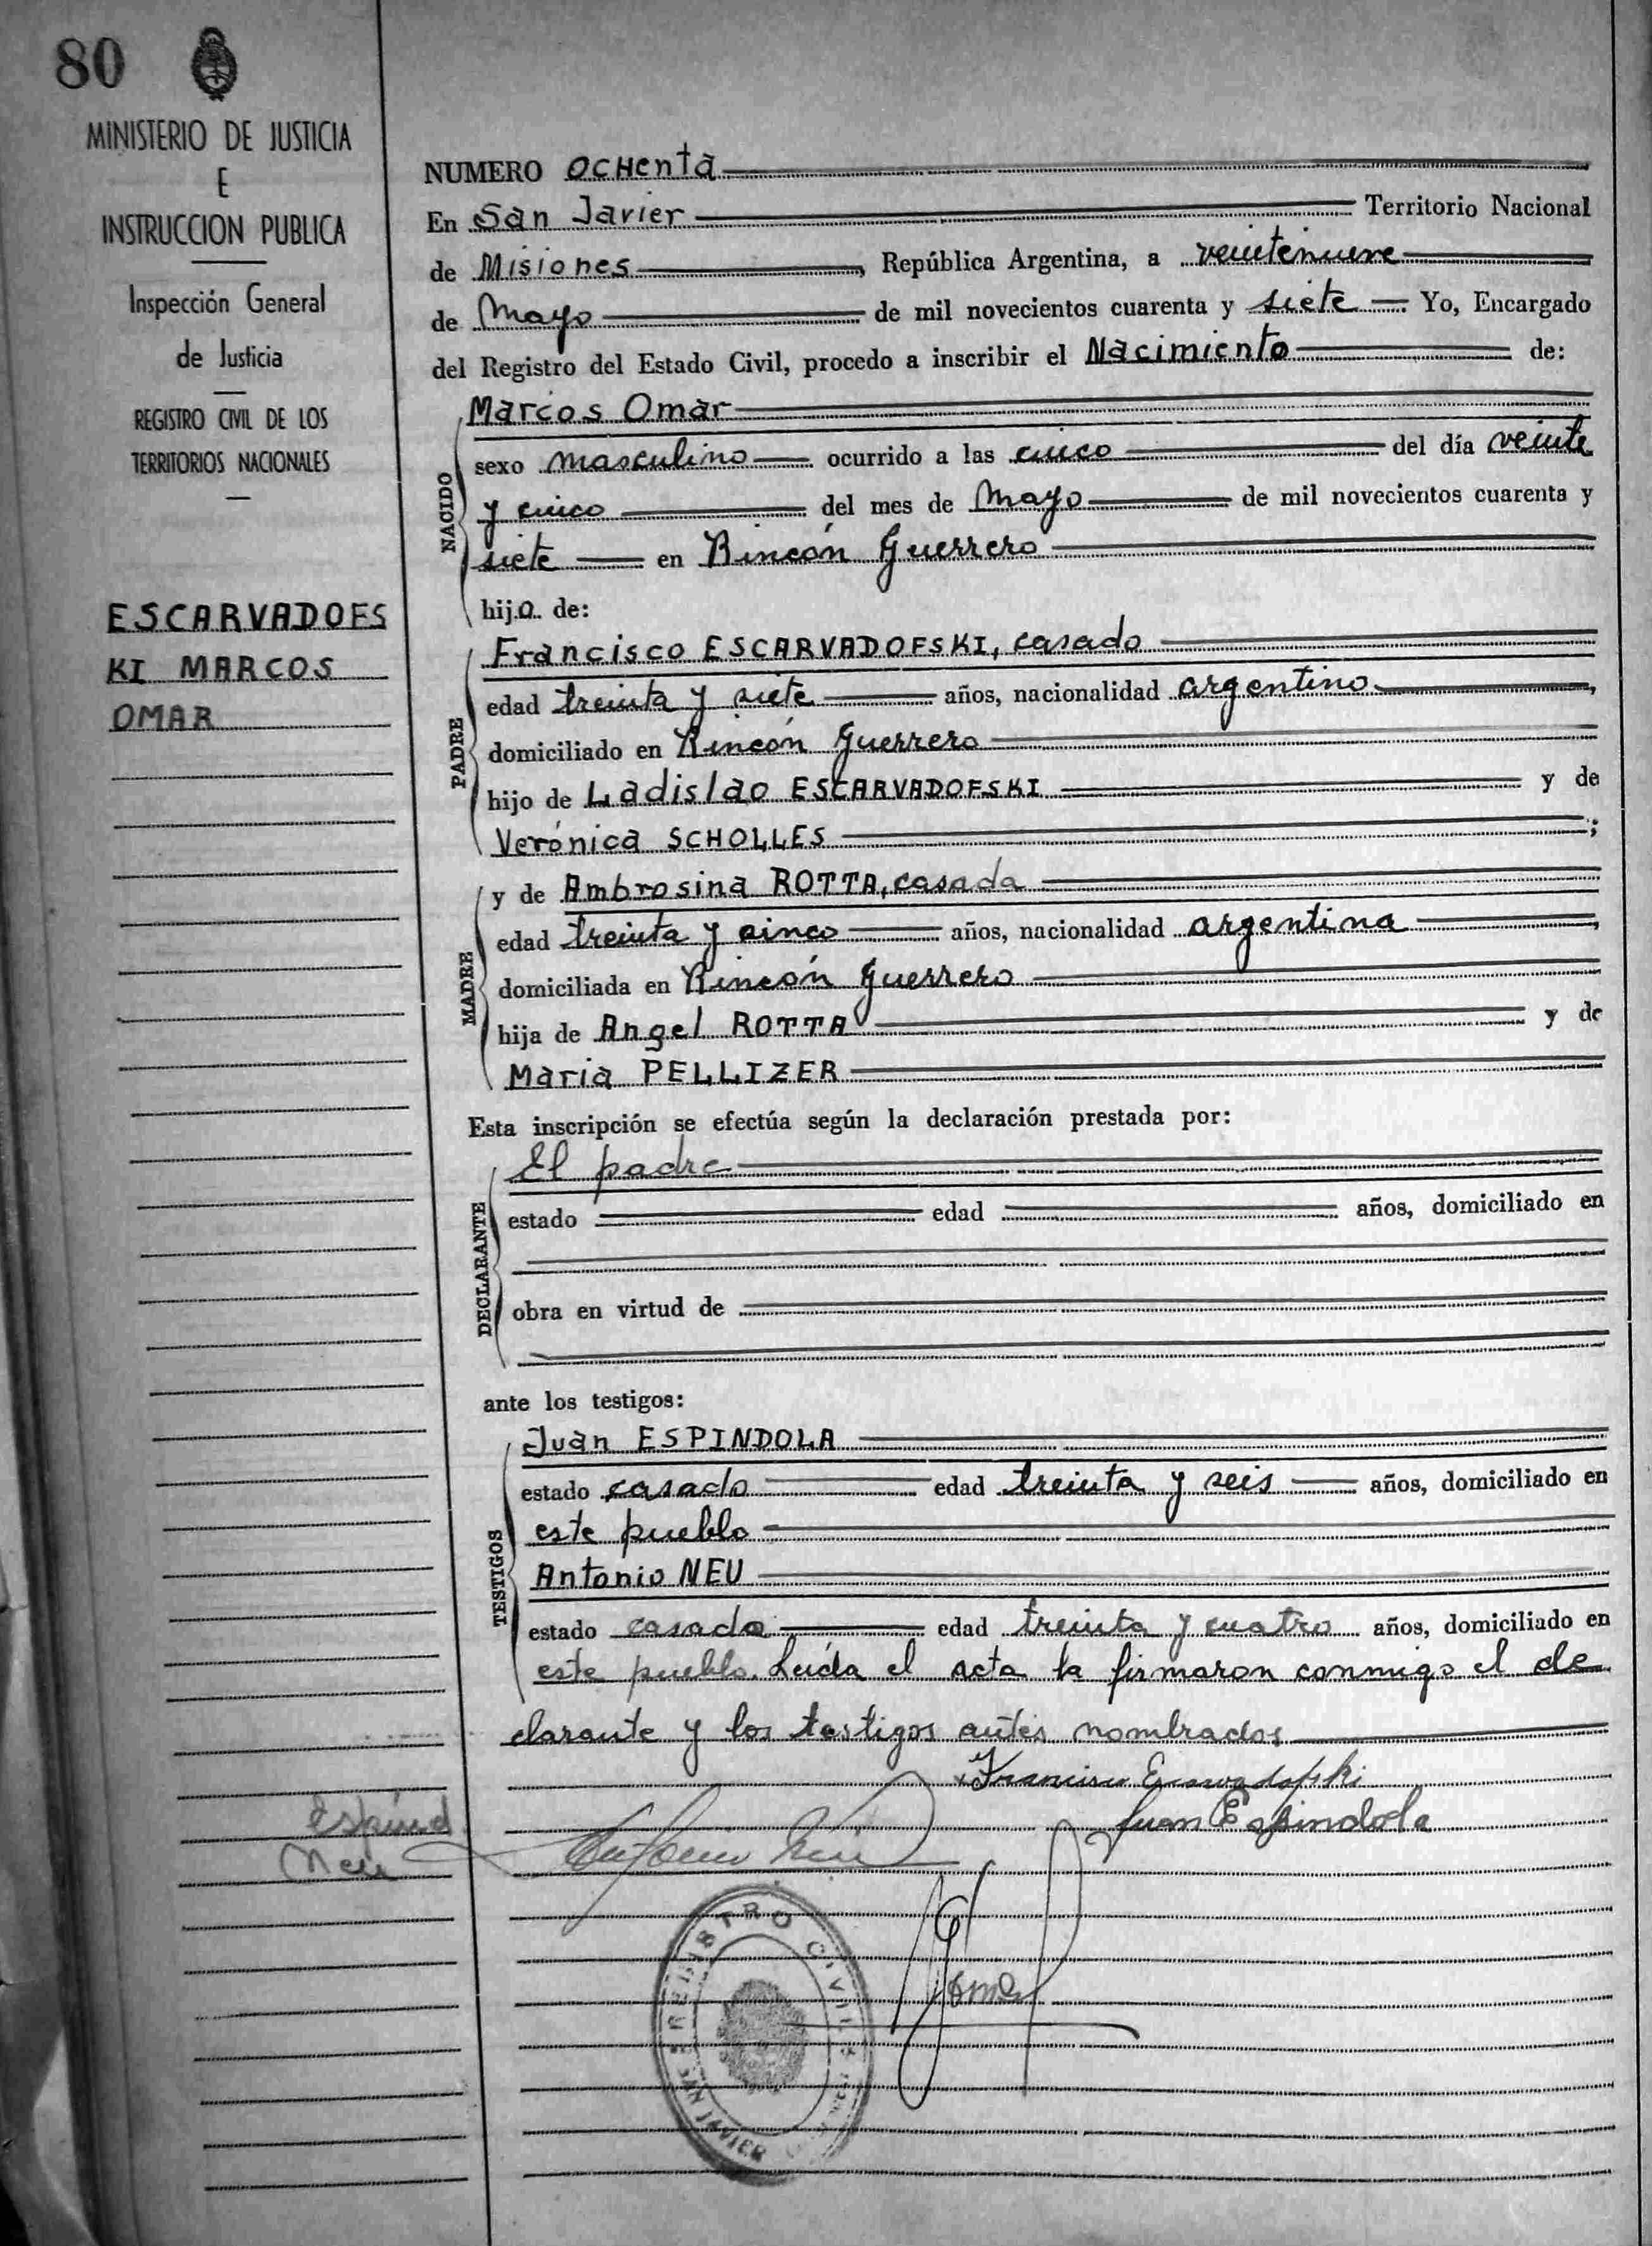 80
MINISTERIO DE JUSTICIA
E
INSTRUCCION PUBLICA
Inspección General
de Justicia
REGISTRO CIVIL DE LOS
TERRITORIOS NACIONALES
ESCARVADOFS
KI MARCOS
OMAR
NUMERO OCHenta
En San Javier Territorio Nacional
de Misiones, República Argentina, a veintenueve
de Mayo de mil novecientos cuarenta y siete. Yo, Encargado
del Registro del Estado Civil, procedo a inscribir el Nacimiento de:
NACIDO
Marcos Omar
sexo masculino ocurrido a las cinco del día veinte
y cinco del mes de Mayo de mil novecientos cuarenta y
siete en Rincón Guerrero
hijo de:
PADRE
Francisco ESCARVADOFSKI, casado
edad treinta y siete años, nacionalidad argentino,
domiciliado en Rincón Guerrero
hijo de Ladislao ESCARVADOFSKI y de
Verónica SCHOLLES;
MADRE
y de Ambrosina ROTTA, casada
edad treinta y cinco años, nacionalidad argentina,
domiciliada en Rincón Guerrero
hija de Angel ROTTA y de
Maria PELLIZER
Esta inscripción se efectúa según la declaración prestada por:
DECLARANTE
El padre
estado edad años, domiciliado en
obra en virtud de
ante los testigos:
TESTIGOS
Juan ESPINDOLA
estado casado edad treinta y seis años, domiciliado en
este pueblo
Antonio NEU
estado casado edad treinta y cuatro años, domiciliado en
este pueblo. Leída el acta la firmaron conmigo el de
clarante y los testigos antes nombrados
Juan Espindola
Espind
Neu
Antonio Neu
REGISTRO CIVIL
SAN JAVIER